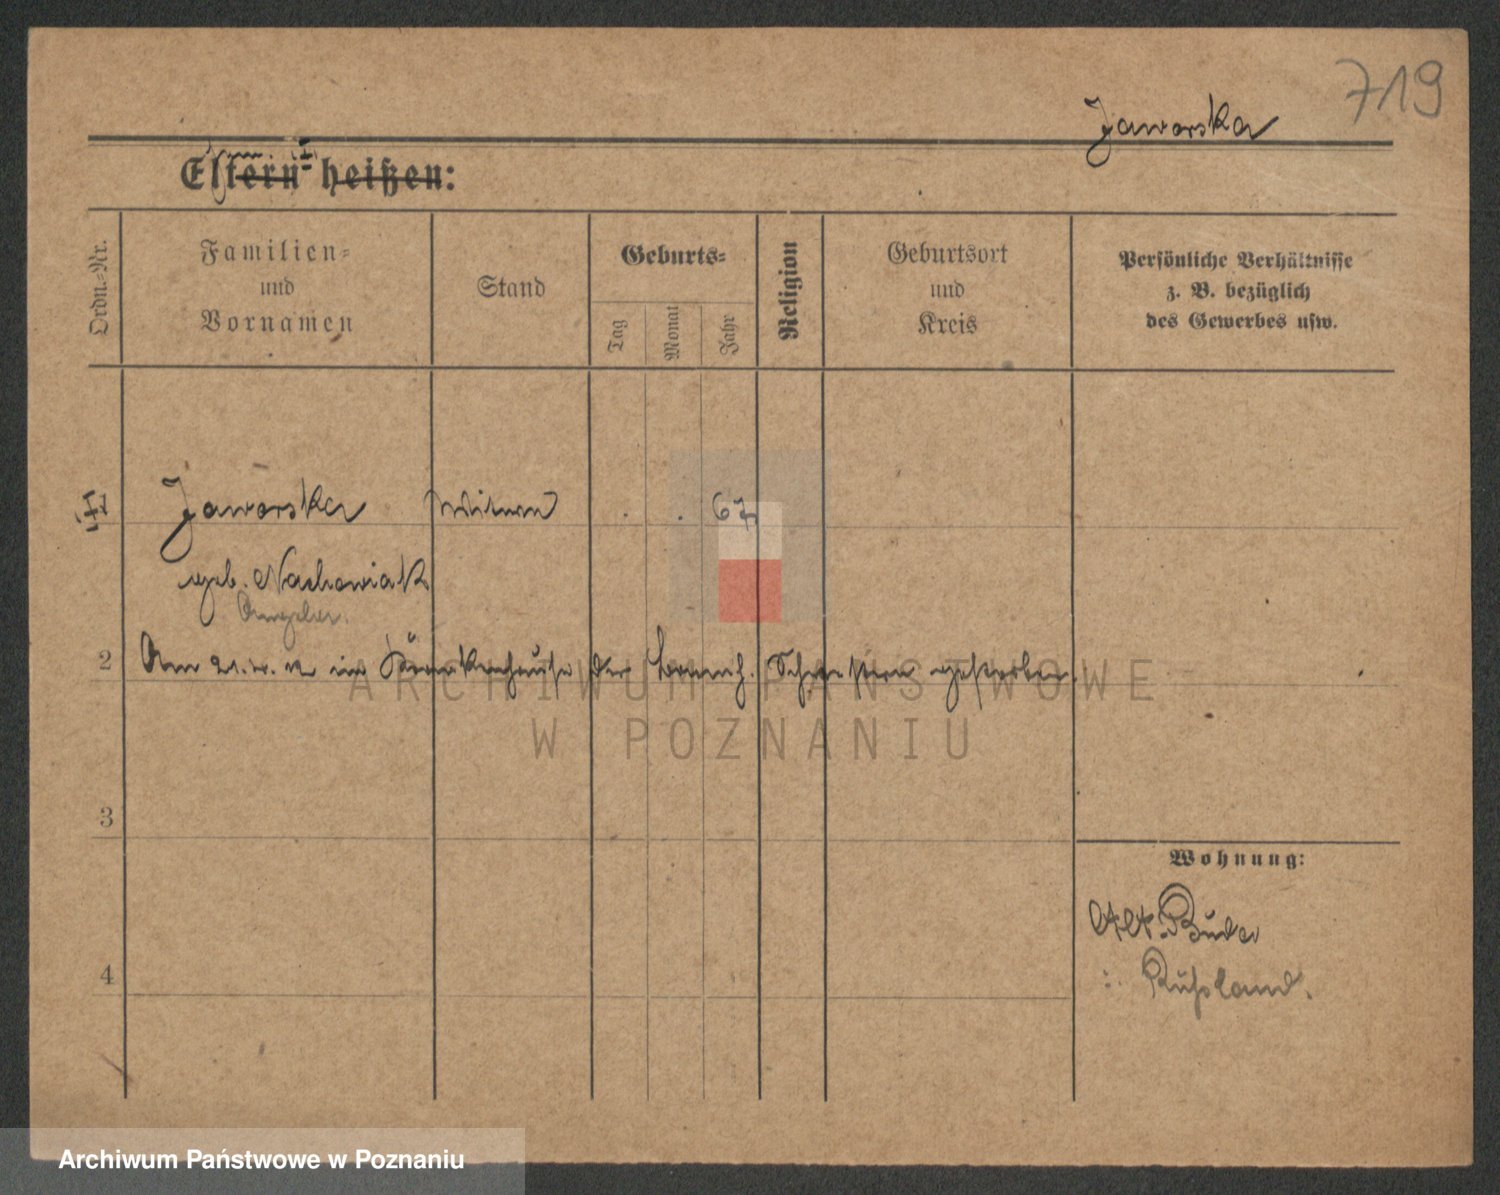 719
Jaworska
Eltern heißen:
Ordn.-Nr.
Familien-
und
Vornamen
Stand
Geburts-
Tag
Monat
Jahr
Religion
Geburtsort
und
Kreis
Persönliche Verhältnisse
z. B. bezüglich
des Gewerbes usw.
1 Jaworska Witwe . . 67
geb. Nachowiak
2 Am 21. 12 im Krankenhause der barmh. Schwestern gestorben.
ARCHIWUM PAŃSTWOWE
W POZNANIU
3
Wohnung:
Alt-Buda
4
: Rußland.
Archiwum Państwowe w Poznaniu